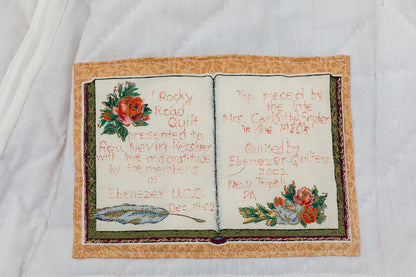 "Rocky
Road
Quilt
presented to
Rev. Nevin Kershner
with love and gratitude
by the members
of
Ebenezer U.C.C.
Dec. 14-02
Top pieced by
the late
Mrs. Carl Snyder
in the 1980's
Quilted by
Ebenezer Quilters
2002
New Tripoli
PA